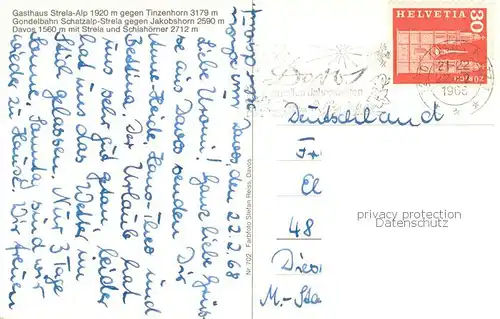 Gasthaus Strela-Alp 1920 m gegen Tinzenhorn 3179 m
Gondelbahn Schatzalp-Strela gegen Jakobshorn 2590 m
Davos 1560 m mit Strela und Schiahörner 2712 m
Davos, den 22.2.68
Liebe Uromi! Ganz liebe Grüße
aus Davos senden Dir
Heide, Hans-Theo und
Bettina. Der Urlaub hat
uns sehr gut getan, leider
hat uns das Wetter im
Stich gelassen. Nur 3 Tage
Sonne. Samstag sind wir
wieder zu Hause. Wir freuen
Nr. 702 Farbfoto Stefan Reiss, Davos
HELVETIA
30
Davos
21-22
1968
Deutschland
Fr
El
48
M.-Sta
privacy protection
Datenschutz